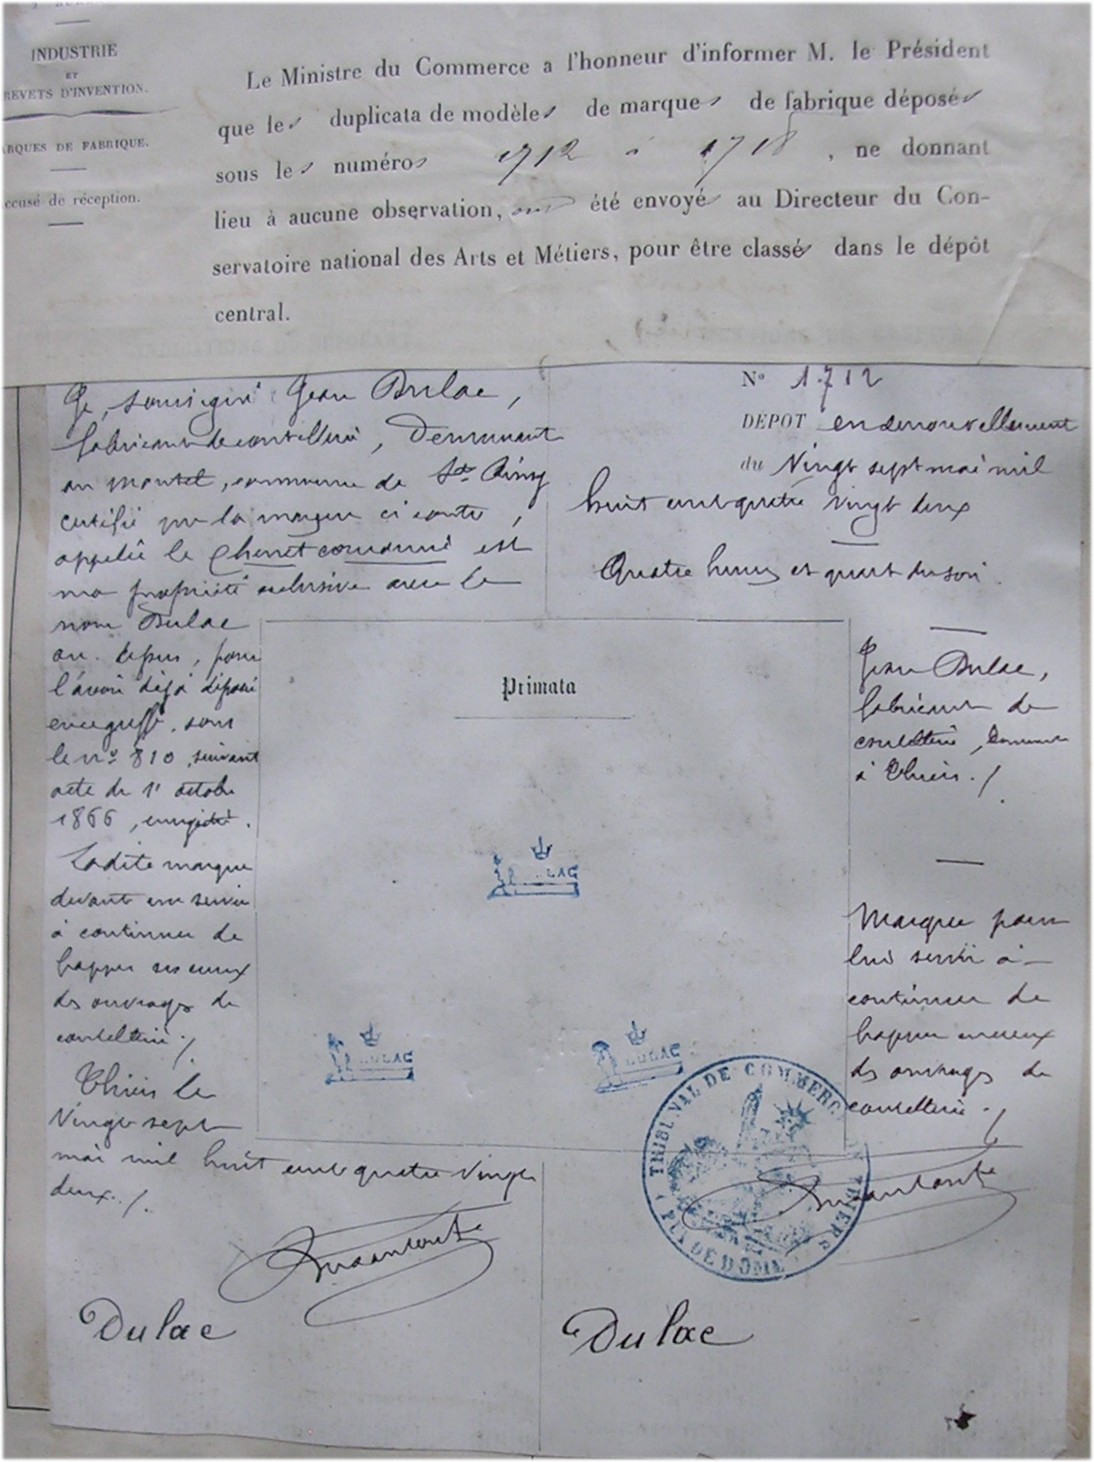 INDUSTRIE
ET
REVETS D'INVENTION.
RQUES DE FABRIQUE.
ccusé de réception.
Le Ministre du Commerce a l'honneur d'informer M. le Président
que les duplicata de modèles de marques de fabrique déposés
sous les numéros 1712 à 1718, ne donnant
lieu à aucune observation, ont été envoyés au Directeur du Con-
servatoire national des Arts et Métiers, pour être classés dans le dépôt
central.
Je, soussigné Jean Dulac,
fabricant de coutellerie, Demeurant
au , commune de St Rémy
certifie que la marque ci contre,
appelée le Chenet couronné est
ma propriété exclusive avec le
nom Dulac
au , pour
l'avoir déjà déposé
en sous
le no 810, suivant
acte du 1r octobre
1866, enregistré.
Ladite marque
devant me servir
à continuer de
frapper ses creux
des ouvrages de
coutellerie ./.
Thiers le
Vingt sept
mai mil huit cent quatre Vingt
deux ./.
Dulac
No 1712
DÉPOT en renouvellement
du Vingt sept mai mil
huit cent quatre vingt deux
Quatre heures et quart du soir.
Primata
Jean Dulac,
fabricant de
coutellerie, Demeurant
à Thiers ./.
Marque pour
lui servir à
continuer de
frapper en creux
des ouvrages de
coutellerie ./.
LAC
DULAC
DULAC
TRIBUNAL DE COMMERCE
THIERS
PUY DE DOME
Dulac